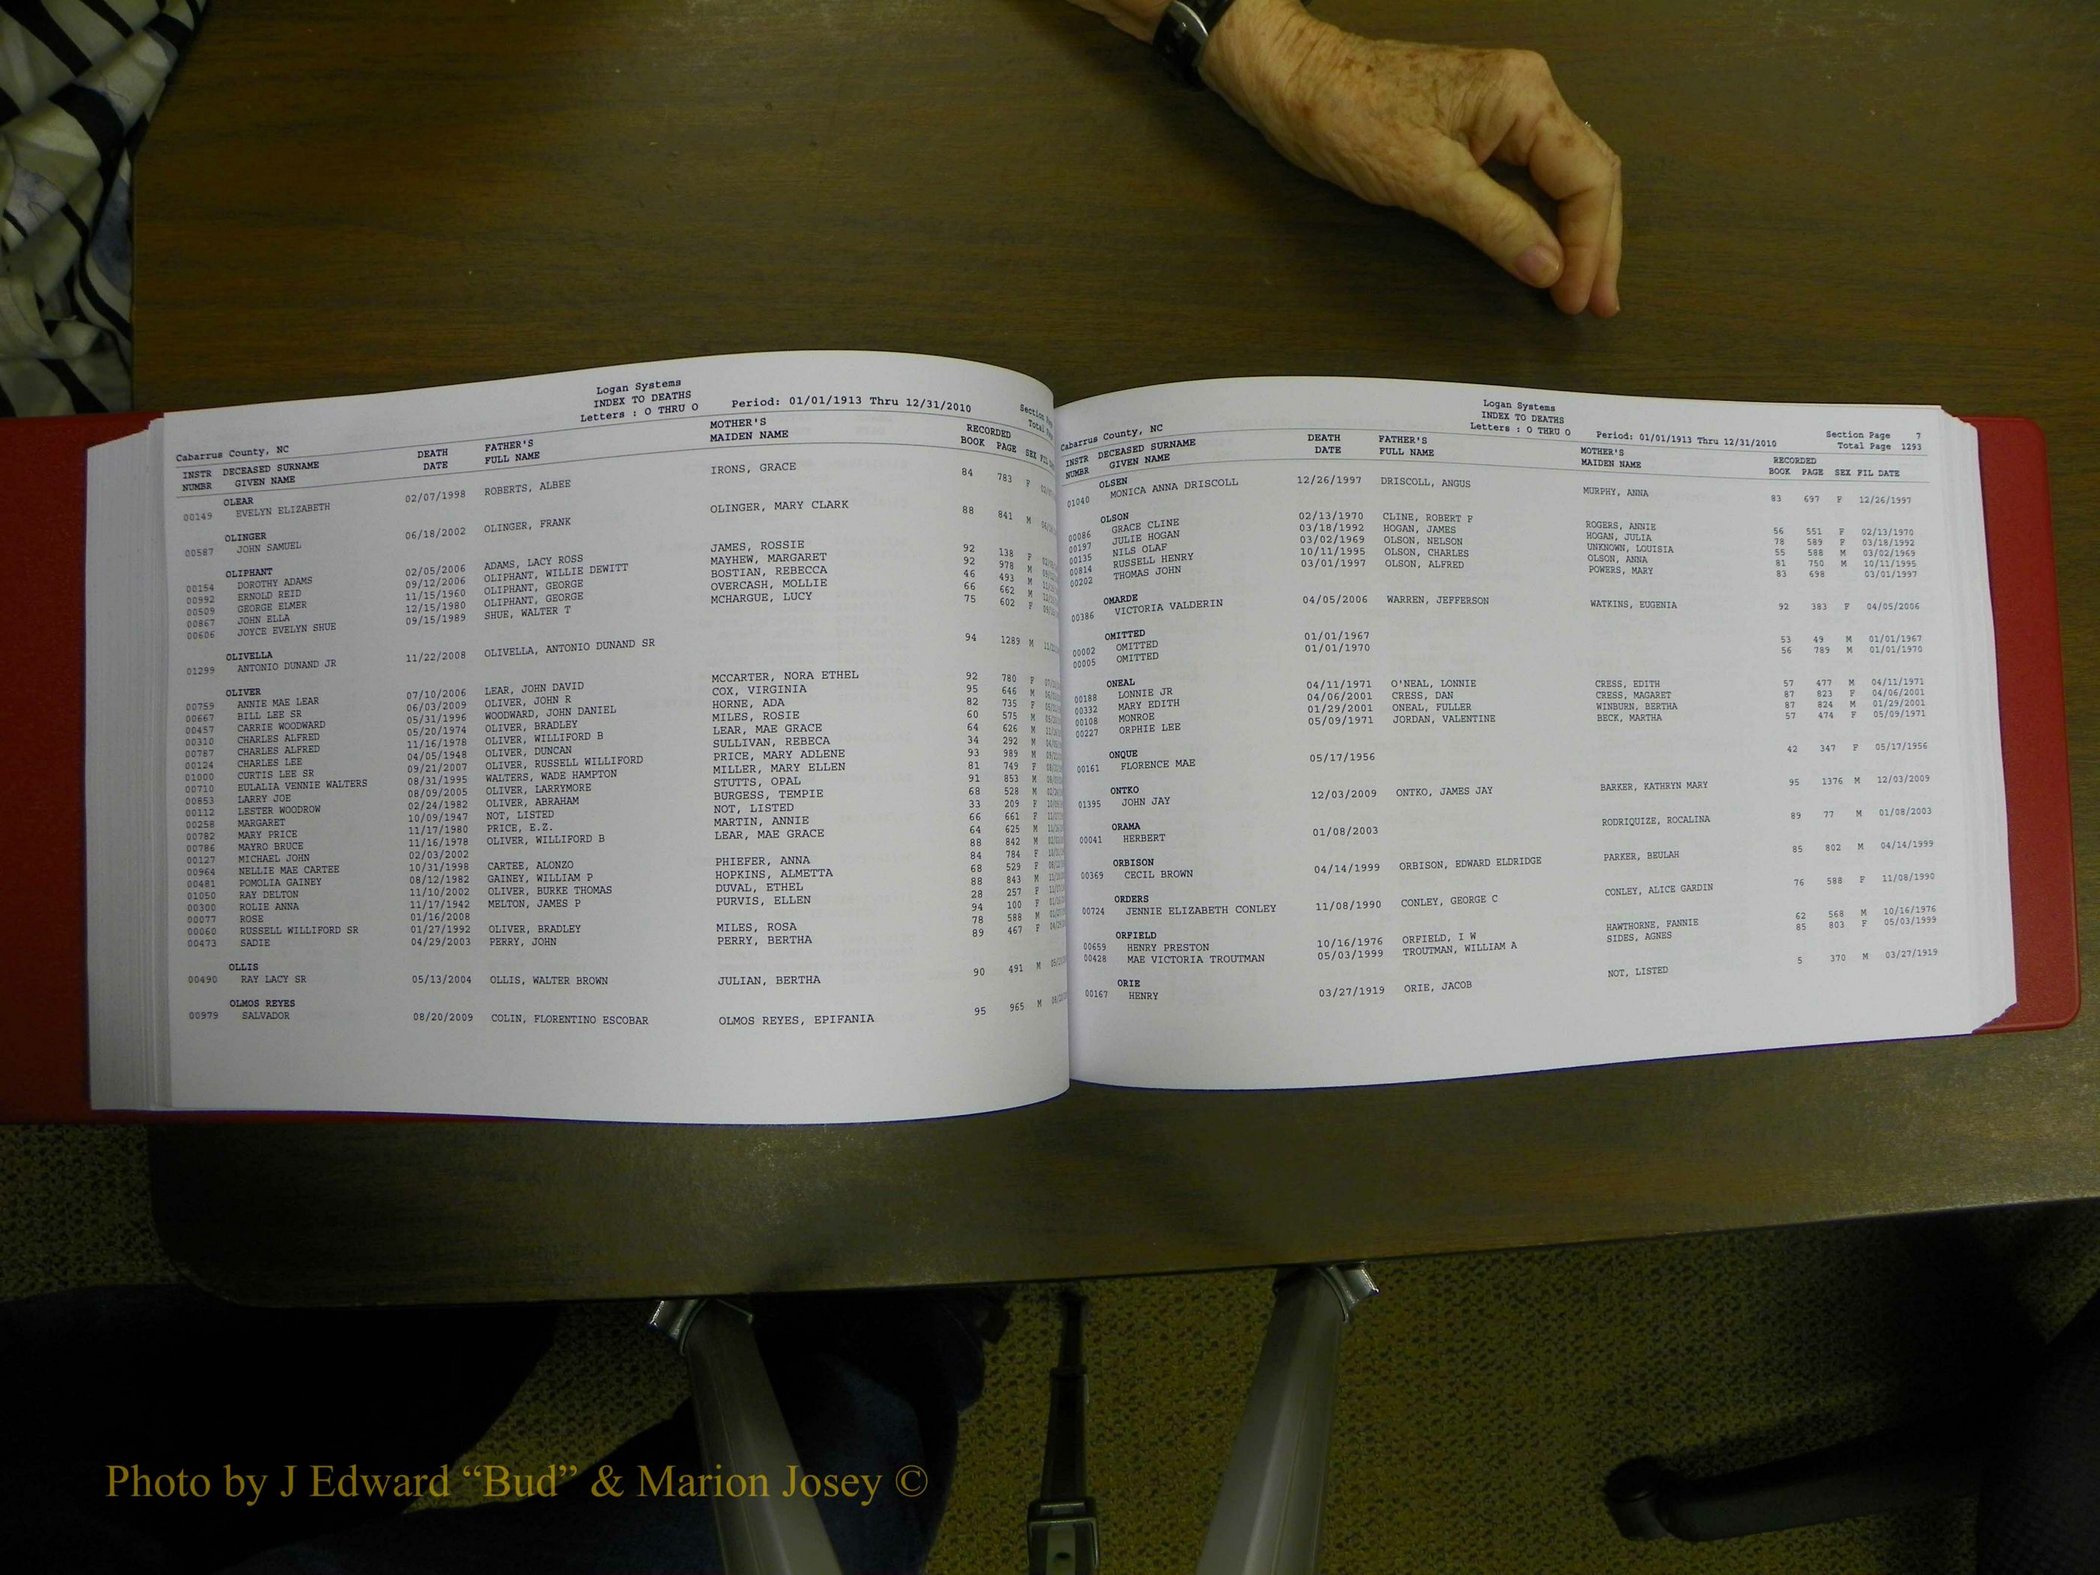 Logan Systems
INDEX TO DEATHS
Letters : O THRU O Period: 01/01/1913 Thru 12/31/2010
Section
Total
Cabarrus County, NC
INSTR DECEASED SURNAME DEATH FATHER'S MOTHER'S RECORDED
NUMBR GIVEN NAME DATE FULL NAME MAIDEN NAME BOOK PAGE SEX FIL
OLEAR
00149 EVELYN ELIZABETH 02/07/1998 ROBERTS, ALBEE IRONS, GRACE 84 783 F
OLINGER
00587 JOHN SAMUEL 06/18/2002 OLINGER, FRANK OLINGER, MARY CLARK 88 841 M
OLIPHANT
00154 DOROTHY ADAMS 02/05/2006 ADAMS, LACY ROSS JAMES, ROSSIE 92 138 F
00992 ERNOLD REID 09/12/2006 OLIPHANT, WILLIE DEWITT MAYHEW, MARGARET 92 978 M
00509 GEORGE ELMER 11/15/1960 OLIPHANT, GEORGE BOSTIAN, REBECCA 46 493 M
00867 JOHN ELLA 12/15/1980 OLIPHANT, GEORGE OVERCASH, MOLLIE 66 662 M
00606 JOYCE EVELYN SHUE 09/15/1989 SHUE, WALTER T MCHARGUE, LUCY 75 602 F
OLIVELLA
01299 ANTONIO DUNAND JR 11/22/2008 OLIVELLA, ANTONIO DUNAND SR 94 1289 M
OLIVER
00759 ANNIE MAE LEAR 07/10/2006 LEAR, JOHN DAVID MCCARTER, NORA ETHEL 92 780 F
00667 BILL LEE SR 06/03/2009 OLIVER, JOHN R COX, VIRGINIA 95 646 M
00457 CARRIE WOODWARD 05/31/1996 WOODWARD, JOHN DANIEL HORNE, ADA 82 735 F
00310 CHARLES ALFRED 05/20/1974 OLIVER, BRADLEY MILES, ROSIE 60 575 M
00787 CHARLES ALFRED 11/16/1978 OLIVER, WILLIFORD B LEAR, MAE GRACE 64 626 M
00124 CHARLES LEE 04/05/1948 OLIVER, DUNCAN SULLIVAN, REBECA 34 292 M
01000 CURTIS LEE SR 09/21/2007 OLIVER, RUSSELL WILLIFORD PRICE, MARY ADLENE 93 989 M
00710 EULALIA VENNIE WALTERS 08/31/1995 WALTERS, WADE HAMPTON MILLER, MARY ELLEN 81 749 F
00853 LARRY JOE 08/09/2005 OLIVER, LARRYMORE STUTTS, OPAL 91 853 M
00112 LESTER WOODROW 02/24/1982 OLIVER, ABRAHAM BURGESS, TEMPIE 68 528 M
00258 MARGARET 10/09/1947 NOT, LISTED NOT, LISTED 33 209 F
00782 MARY PRICE 11/17/1980 PRICE, E.Z. MARTIN, ANNIE 66 661 F
00786 MAYRO BRUCE 11/16/1978 OLIVER, WILLIFORD B LEAR, MAE GRACE 64 625 M
00127 MICHAEL JOHN 02/03/2002 88 842 M
00964 NELLIE MAE CARTEE 10/31/1998 CARTEE, ALONZO PHIEFER, ANNA 84 784 F
00481 POMOLIA GAINEY 08/12/1982 GAINEY, WILLIAM P HOPKINS, ALMETTA 68 529 F
01050 RAY DELTON 11/10/2002 OLIVER, BURKE THOMAS DUVAL, ETHEL 88 843 M
00300 ROLIE ANNA 11/17/1942 MELTON, JAMES P PURVIS, ELLEN 28 257 F
00077 ROSE 01/16/2008 94 100 F
00060 RUSSELL WILLIFORD SR 01/27/1992 OLIVER, BRADLEY MILES, ROSA 78 588 M
00473 SADIE 04/29/2003 PERRY, JOHN PERRY, BERTHA 89 467 F
OLLIS
00490 RAY LACY SR 05/13/2004 OLLIS, WALTER BROWN JULIAN, BERTHA 90 491 M
OLMOS REYES
00979 SALVADOR 08/20/2009 COLIN, FLORENTINO ESCOBAR OLMOS REYES, EPIFANIA 95 965 M
Logan Systems
INDEX TO DEATHS
Letters : O THRU O Period: 01/01/1913 Thru 12/31/2010
Section Page 7
Total Page 1293
Cabarrus County, NC
INSTR DECEASED SURNAME DEATH FATHER'S MOTHER'S RECORDED
NUMBR GIVEN NAME DATE FULL NAME MAIDEN NAME BOOK PAGE SEX FIL DATE
OLSEN
01040 MONICA ANNA DRISCOLL 12/26/1997 DRISCOLL, ANGUS MURPHY, ANNA 83 697 F 12/26/1997
OLSON
00086 GRACE CLINE 02/13/1970 CLINE, ROBERT F ROGERS, ANNIE 56 551 F 02/13/1970
00197 JULIE HOGAN 03/18/1992 HOGAN, JAMES HOGAN, JULIA 78 589 F 03/18/1992
00135 NILS OLAF 03/02/1969 OLSON, NELSON UNKNOWN, LOUISIA 55 588 M 03/02/1969
00814 RUSSELL HENRY 10/11/1995 OLSON, CHARLES OLSON, ANNA 81 750 M 10/11/1995
00202 THOMAS JOHN 03/01/1997 OLSON, ALFRED POWERS, MARY 83 698 03/01/1997
OMARDE
00386 VICTORIA VALDERIN 04/05/2006 WARREN, JEFFERSON WATKINS, EUGENIA 92 383 F 04/05/2006
OMITTED
00002 OMITTED 01/01/1967 53 49 M 01/01/1967
00005 OMITTED 01/01/1970 56 789 M 01/01/1970
ONEAL
00188 LONNIE JR 04/11/1971 O'NEAL, LONNIE CRESS, EDITH 57 477 M 04/11/1971
00332 MARY EDITH 04/06/2001 CRESS, DAN CRESS, MAGARET 87 823 F 04/06/2001
00108 MONROE 01/29/2001 ONEAL, FULLER WINBURN, BERTHA 87 824 M 01/29/2001
00227 ORPHIE LEE 05/09/1971 JORDAN, VALENTINE BECK, MARTHA 57 474 F 05/09/1971
ONQUE
00161 FLORENCE MAE 05/17/1956 42 347 F 05/17/1956
ONTKO
01395 JOHN JAY 12/03/2009 ONTKO, JAMES JAY BARKER, KATHRYN MARY 95 1376 M 12/03/2009
ORAMA
00041 HERBERT 01/08/2003 RODRIQUIZE, ROCALINA 89 77 M 01/08/2003
ORBISON
00369 CECIL BROWN 04/14/1999 ORBISON, EDWARD ELDRIDGE PARKER, BEULAH 85 802 M 04/14/1999
ORDERS
00724 JENNIE ELIZABETH CONLEY 11/08/1990 CONLEY, GEORGE C CONLEY, ALICE GARDIN 76 588 F 11/08/1990
ORFIELD
00659 HENRY PRESTON 10/16/1976 ORFIELD, I W HAWTHORNE, FANNIE 62 568 M 10/16/1976
00428 MAE VICTORIA TROUTMAN 05/03/1999 TROUTMAN, WILLIAM A SIDES, AGNES 85 803 F 05/03/1999
ORIE
00167 HENRY 03/27/1919 ORIE, JACOB NOT, LISTED 5 370 M 03/27/1919
Photo by J Edward “Bud” & Marion Josey ©